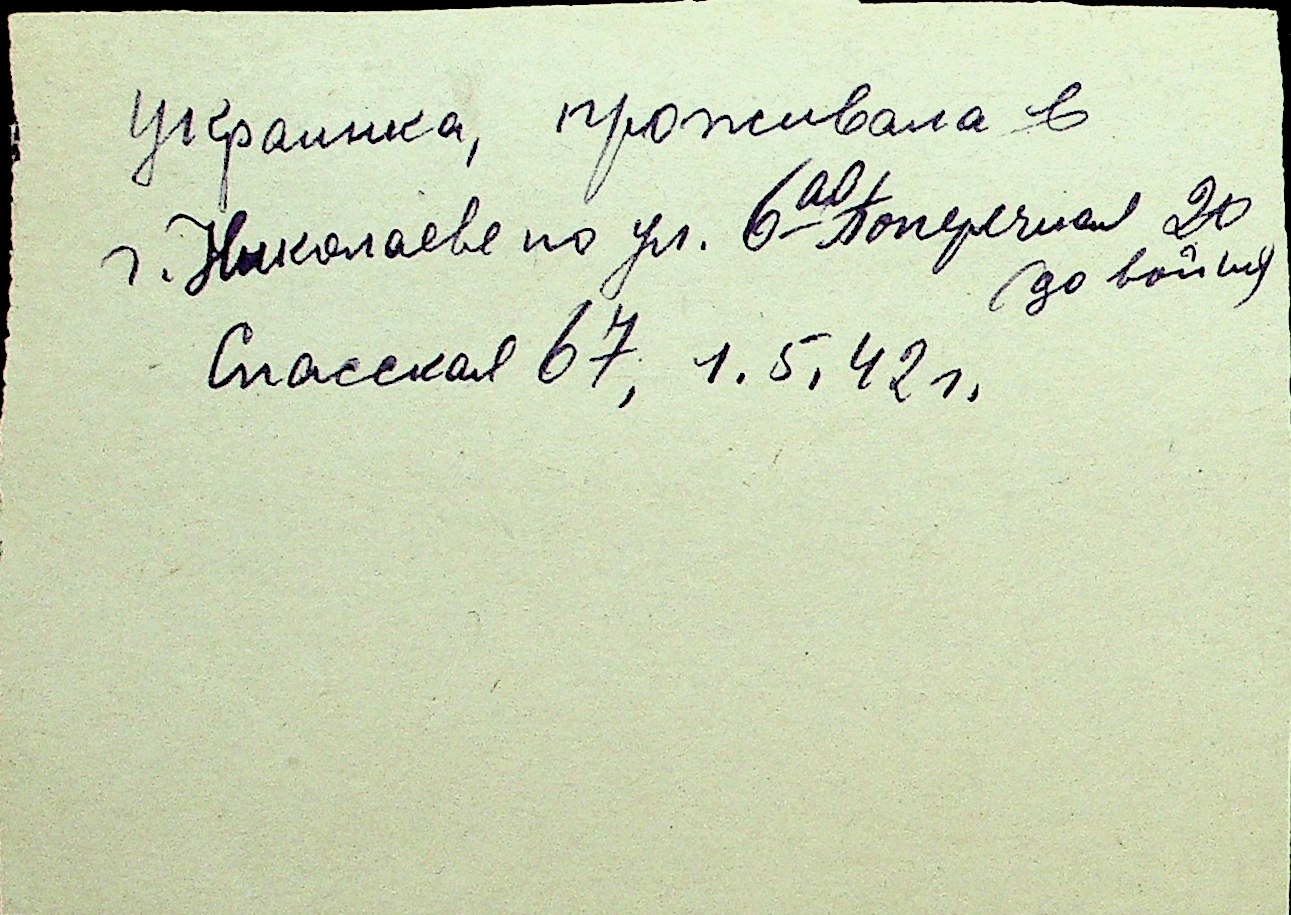 Украинка, проживала в
г. Николаеве по ул. 6-ая Поперечная 20
(до войны)
Спасская 67, 1.5.42 г.